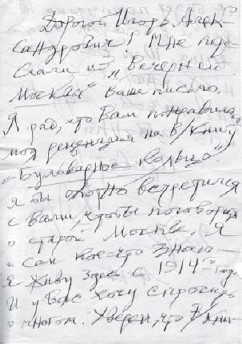 Дорогой Игорь Алек-
сандрович! Мне пере-
слали из "Вечерней
Москвы" Ваше письмо.
Я рад, что Вам понравилась
моя рецензия на в/книгу
"Бульварное кольцо".
Я бы охотно встретился
с Вами, чтобы поговорить
о старой Москве. Я
сам кое-что знаю
Я живу здесь с 1914 года
И у Вас хочу спросить
о многом. Уверен, что